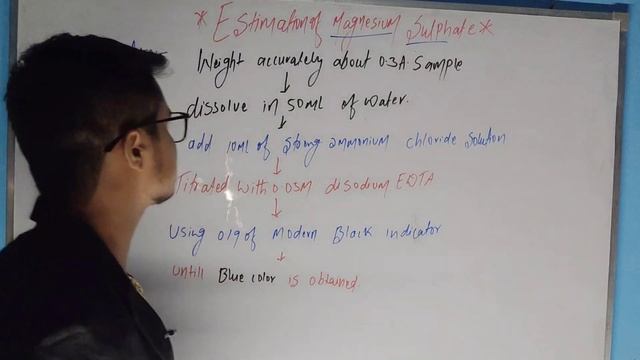 * Estimation of Magnesium Sulphate *
Weight accurately about 0.3A Sample
dissolve in 50ml of water.
add 10ml of Strong ammonium chloride solution
Titrated with 0.05M disodium EDTA
Using 0.1g of Modern Black indicator
untill Blue color is obtained